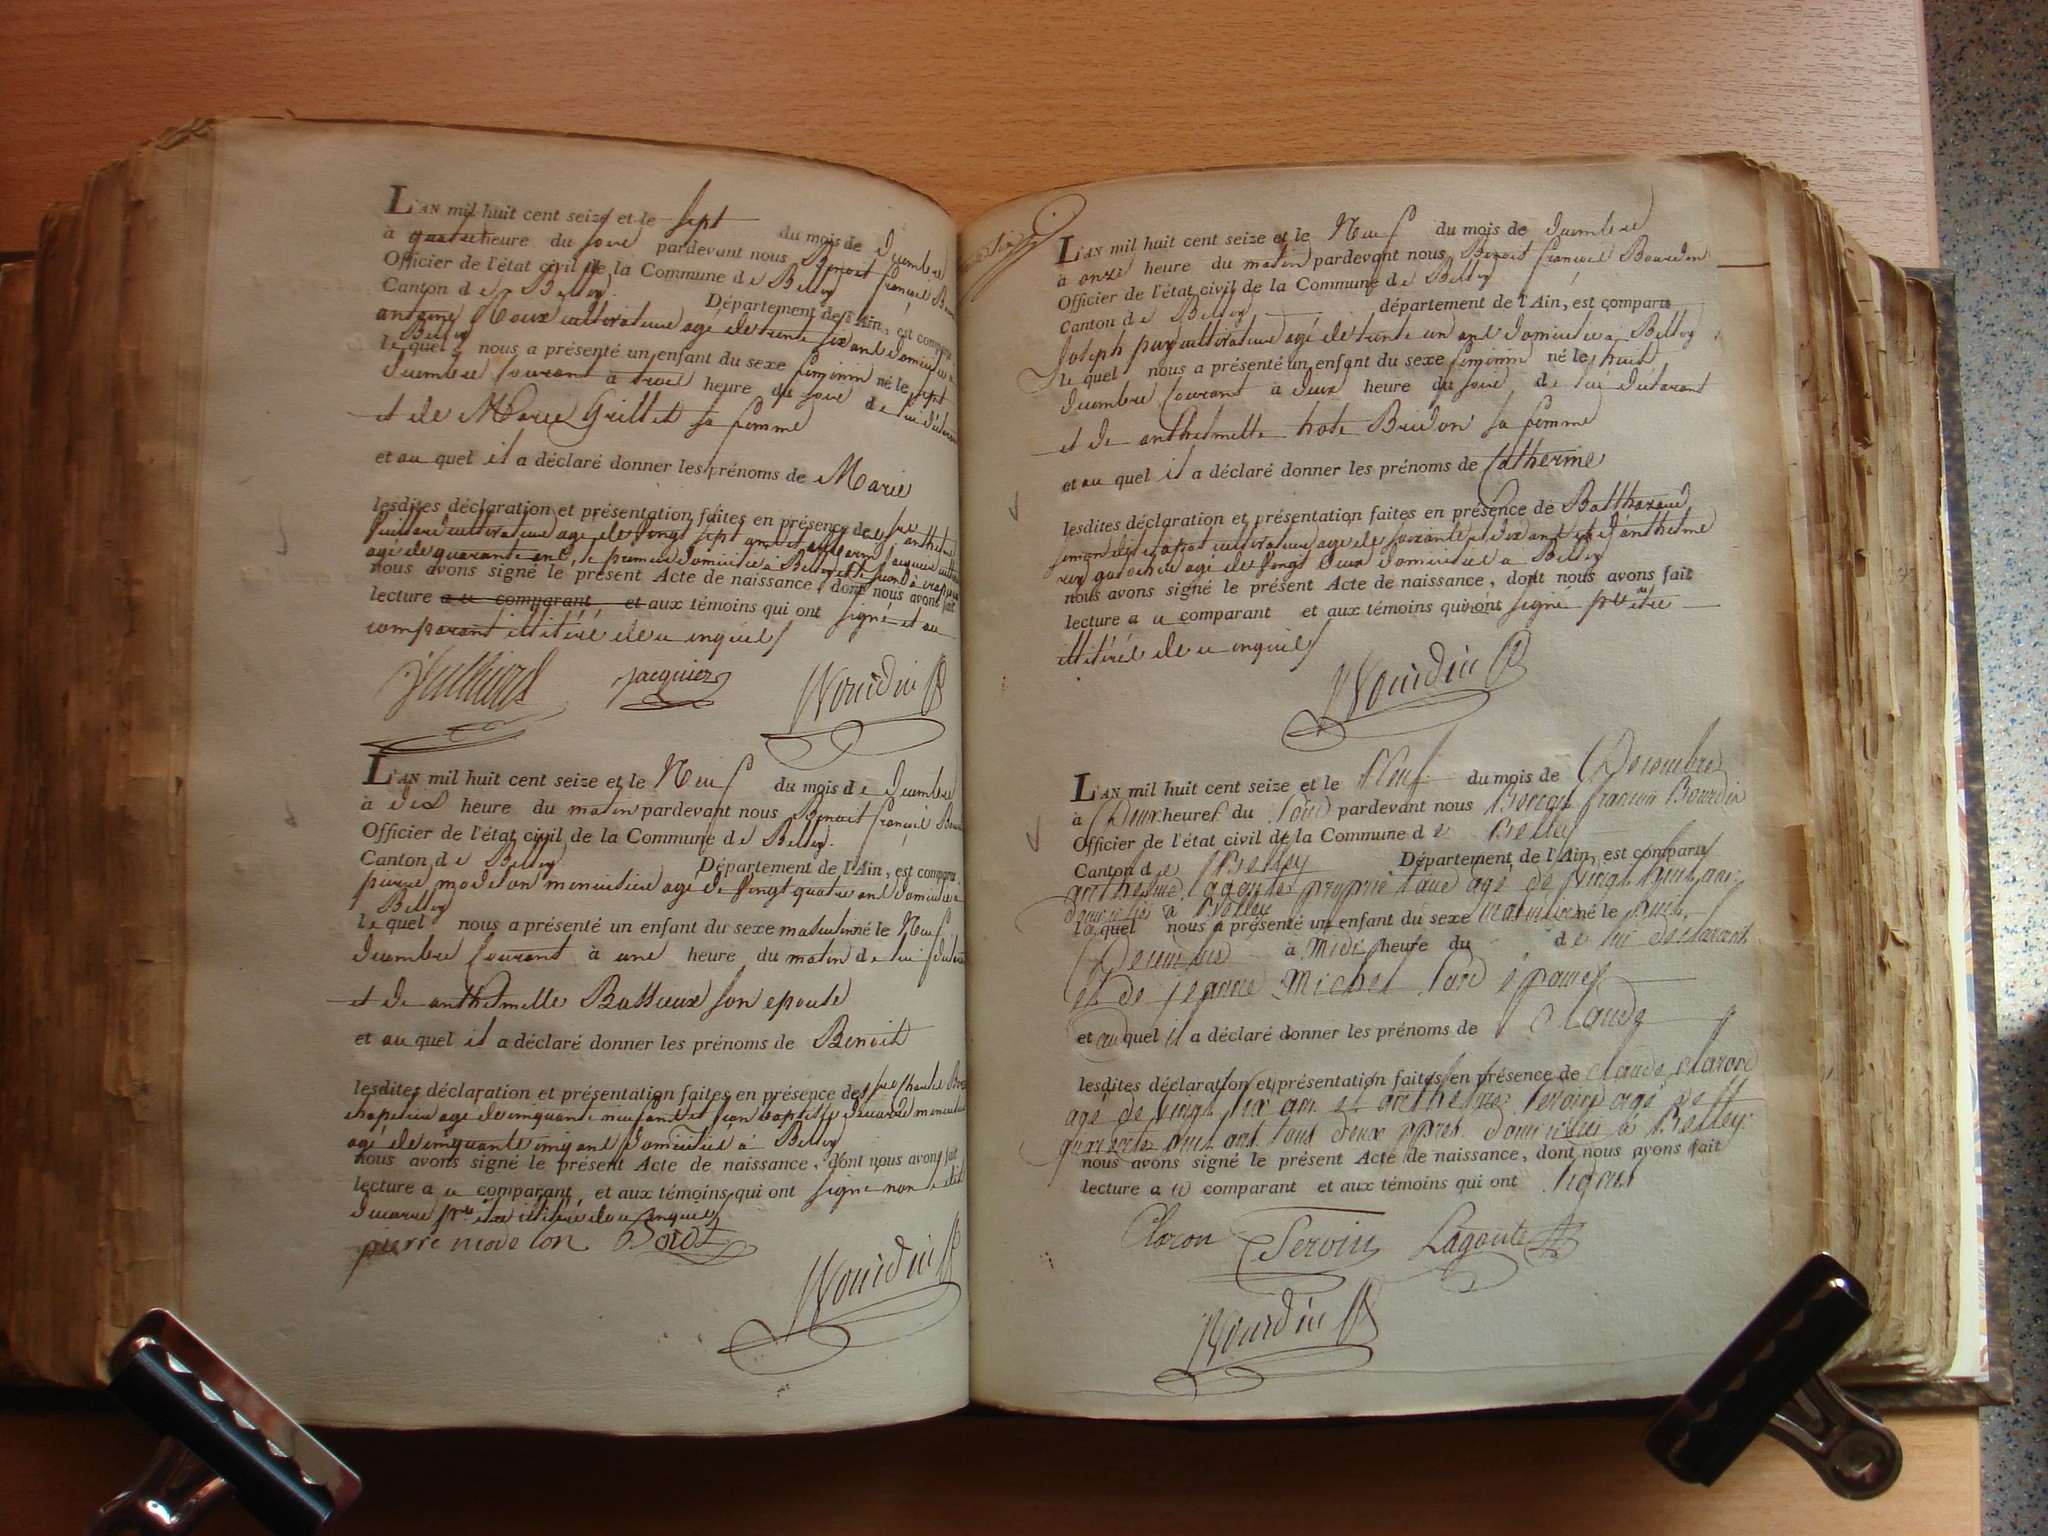 L'AN mil huit cent seize et le sept du mois de décembre
à quatre heure du soir pardevant nous Benoit françois
Officier de l'état civil de la Commune de Belley
Canton de Belley. Département de l'Ain, est comparu
antoine Roux cultivateur agé de trente six ans domicilié à
Belley
le quel nous a présenté un enfant du sexe feminin né le sept
décembre courant à trois heure du soir de lui déclarant
et de Marie Grillet sa femme
et au quel il a déclaré donner les prénoms de Marie
lesdites déclaration et présentation faites en présence de anthelme
cultivateur agé de vingt sept ans et
agé de quarante ans, le premier domicilié à Belley et le second à
nous avons signé le présent Acte de naissance, dont nous avons fait
lecture a ce comparant, et aux témoins qui ont signé et au
comparant illitéré de ce enquis
Jacquier Bourdin
L'AN mil huit cent seize et le Neuf du mois de décembre
à dix heure du matin pardevant nous Benoit françois
Officier de l'état civil de la Commune de Belley.
Canton de Belley Département de l'Ain, est comparu
pierre modelon menuisier agé de vingt quatre ans domicilié à
Belley
le quel nous a présenté un enfant du sexe masculin né le Neuf
décembre courant à une heure du matin de lui déclarant
et de anthelmette Battieux son epouse
et au quel il a déclaré donner les prénoms de Benoit
lesdites déclaration et présentation faites en présence de
chapelier agé de cinquante neuf ans et jean baptiste ducarre menuisier
agé de cinquante cinq ans domicilié à Belley
nous avons signé le présent Acte de naissance, dont nous avons fait
lecture a ce comparant, et aux témoins qui ont signé non le dit
ducarre pr etre illitéré de ce enquis
pierre modelon Bourdin
L'AN mil huit cent seize et le Neuf du mois de décembre
à onze heure du matin pardevant nous Benoit françois Bourdin
Officier de l'état civil de la Commune de Belley
Canton de Belley département de l'Ain, est comparu
Joseph pux cultivateur agé de trente un ans domicilié à Belley
le quel nous a présenté un enfant du sexe feminin né le huit
décembre courant à deux heure du soir de lui déclarant
et de anthelmette hote Bridon sa femme
et au quel il a déclaré donner les prénoms de Catherine
lesdites déclaration et présentation faites en présence de Balthazard
cultivateur agé de soixante et dix ans et d'anthelme
agé de vingt deux domicilié à Belley
nous avons signé le présent Acte de naissance, dont nous avons fait
lecture a ce comparant et aux témoins qui n'ont signé pr etre
illitérés de ce enquis
Bourdin
L'AN mil huit cent seize et le Neuf du mois de Décembre
à Deux heures du soir pardevant nous Benoit françois Bourdin
Officier de l'état civil de la Commune de Belley
Canton de Belley Département de l'Ain, est comparu
anthelme Lagoutte propriétaire agé de vingt huit ans
domicilié à Belley
le quel nous a présenté un enfant du sexe masculin né le neuf
Décembre à Midi heure du de lui déclarant
et de jeanne Michel son épouse
et au quel il a déclaré donner les prénoms de Claude
lesdites déclaration et présentation faites en présence de claude claron
agé de vingt six ans et anthelme Servin agé de
quarante huit ans tous deux domiciliés à Belley.
nous avons signé le présent Acte de naissance, dont nous avons fait
lecture a ce comparant et aux témoins qui ont signés
Claron Servin Lagoutte
Bourdin